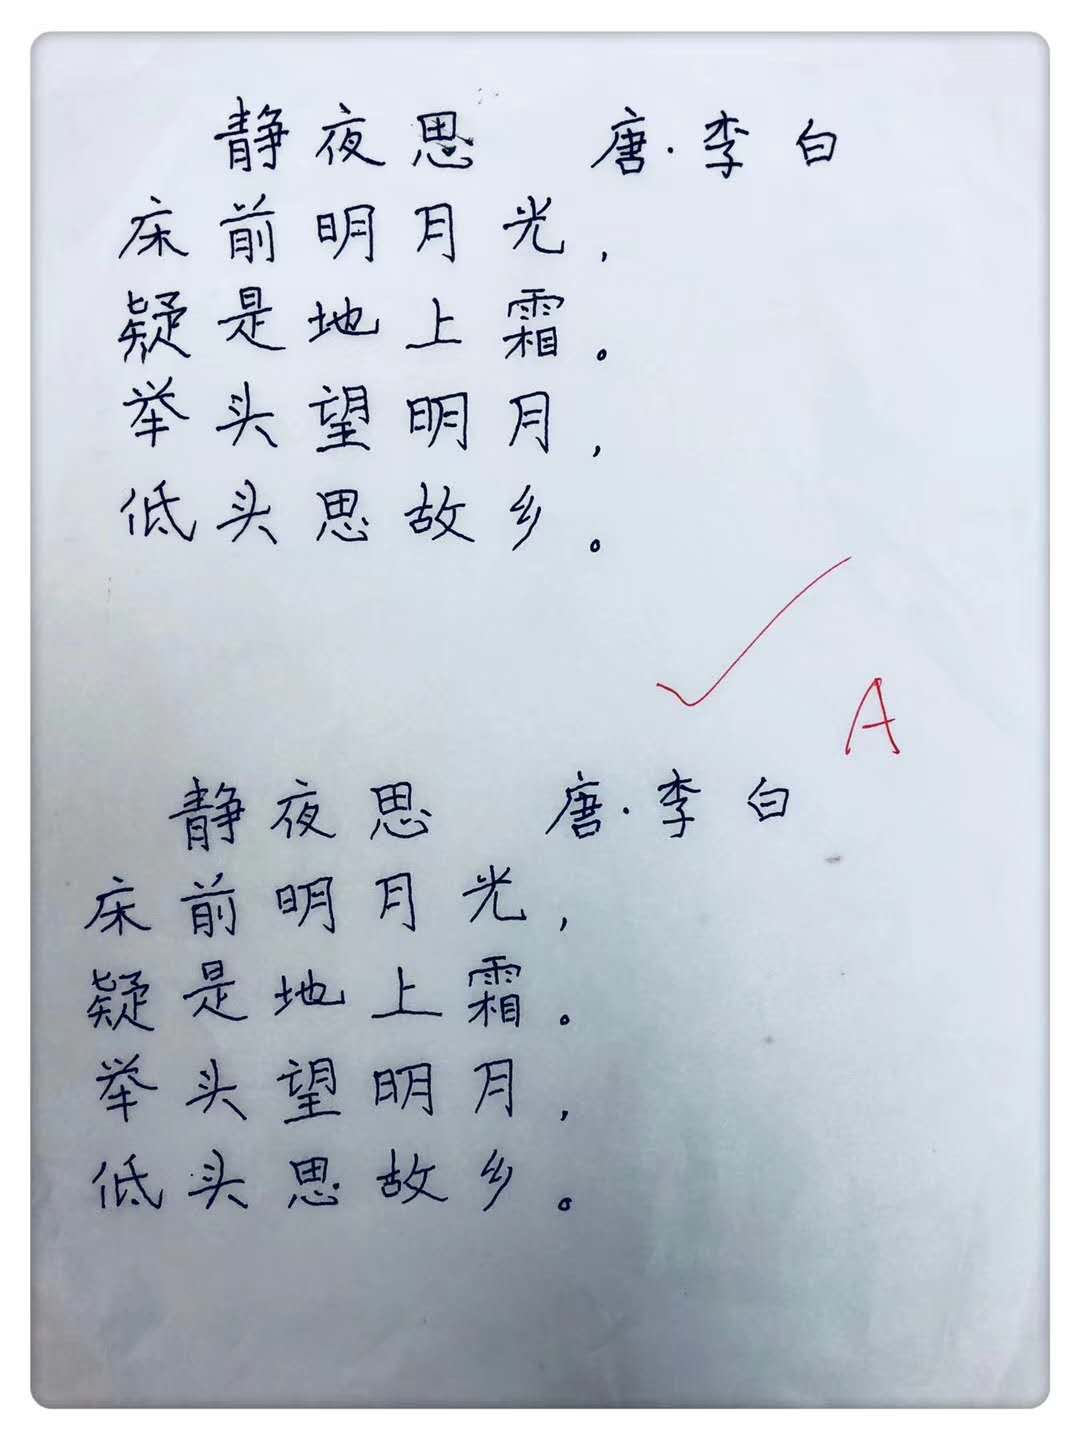 静夜思 唐·李白
床前明月光，
疑是地上霜。
举头望明月，
低头思故乡。
A
静夜思 唐·李白
床前明月光，
疑是地上霜。
举头望明月，
低头思故乡。